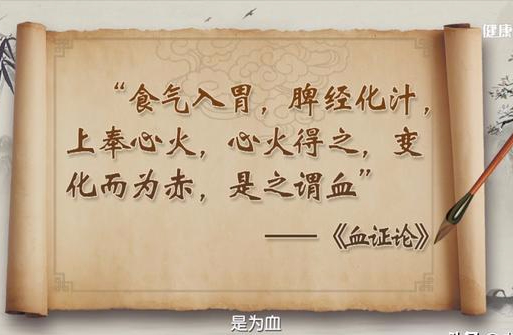 健康
“食气入胃，脾经化汁，
上奉心火，心火得之，变
化而为赤，是之谓血”
——《血证论》
是为血